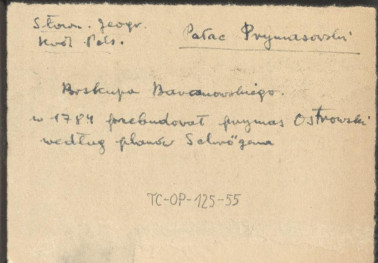 Słown. Geogr.
Król Pols.
Pałac Prymasowski
Biskupa Baranowskiego.
w 1784 przebudował prymas Ostrowski
według planów Schrögera
TC-OP-125-55